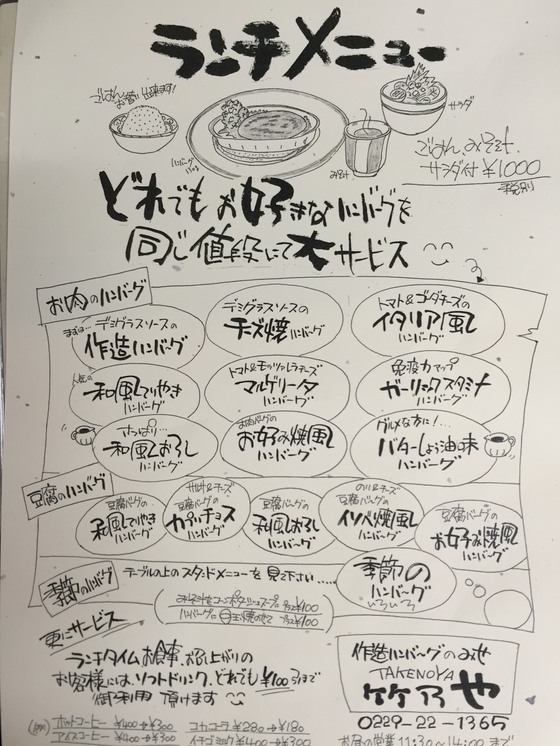 ランチメニュー
ごはん
お替り出来ます!
サラダ
ハンバーグ
みそ汁
ごはん みそ汁
サラダ付 ¥1000
税別
どれでも お好きなハンバーグを
同じ値段にて大サービス
お肉のハンバーグ
まずは…
デミグラスソースの
作造ハンバーグ
デミグラスソースの
チーズ焼ハンバーグ
トマト&ゴーダチーズの
イタリア風
ハンバーグ
人気の
和風てりやき
ハンバーグ
トマト&モッツァレラチーズ
マルゲリータ
ハンバーグ
免疫力アップ
ガーリックスタミナ
ハンバーグ
さっぱり…
和風おろし
ハンバーグ
お肉バーグの
お好み焼風
ハンバーグ
グルメな方に!…
バターしょう油味
ハンバーグ
豆腐のハンバーグ
豆腐バーグの
和風てりやき
ハンバーグ
サルサ&チーズ
豆腐バーグの
カプッチョス
ハンバーグ
豆腐バーグの
和風おろし
ハンバーグ
のり&チーズ
豆腐バーグの
イソベ焼風
ハンバーグ
豆腐バーグの
お好み焼風
ハンバーグ
季節のハンバーグ
テーブルの上のスタンドメニューを見て下さい……
季節の
ハンバーグ
いろいろ
みそ汁をコーンポタージュスープに プラス¥100
ハンバーグに目玉焼のせて プラス¥100
更にサービス
ランチタイムお食事、お召し上がりの
お客様には、ソフトドリンク、どれでも ¥100引きで
御利用 頂けます
作造ハンバーグのみせ
TAKENOYA
竹乃や
0229-22-1365
お昼の営業 11:30〜14:00まで
(例)
ホットコーヒー ¥400→¥300
コカコーラ ¥280→¥180
アイスコーヒー ¥400→¥300
イチゴミルク ¥400→¥300